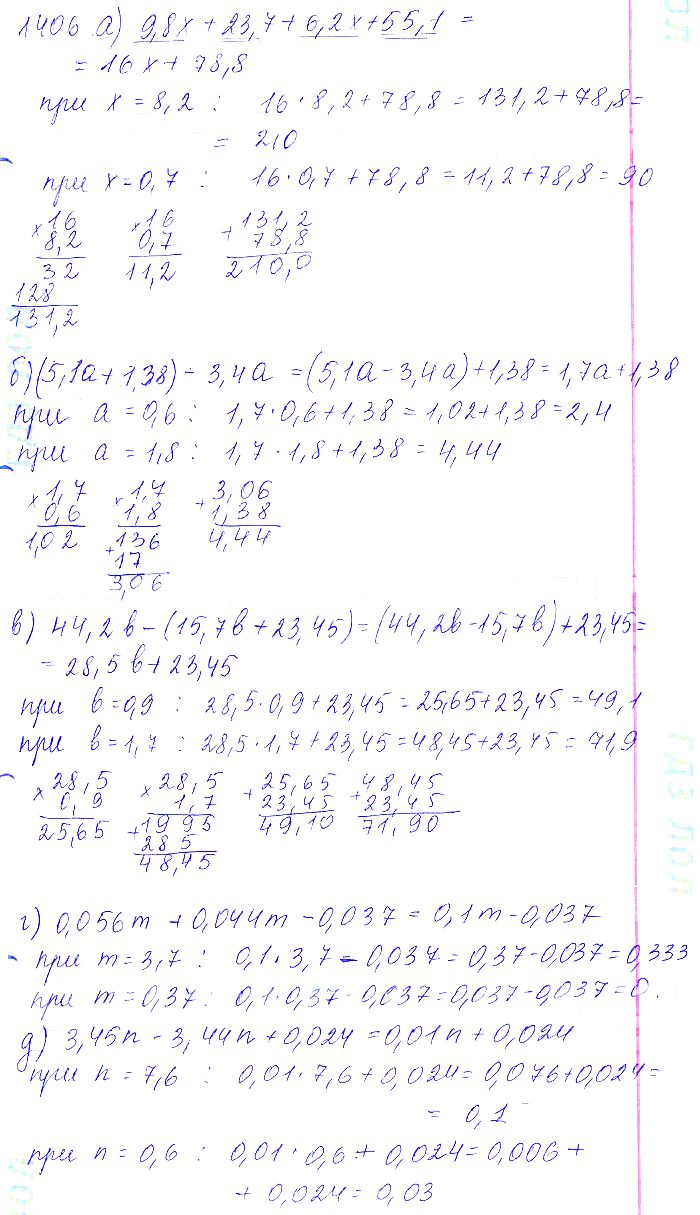 1406 а) 9,8x + 23,7 + 6,2x + 55,1 =
= 16x + 78,8
при x = 8,2 : 16 · 8,2 + 78,8 = 131,2 + 78,8 =
= 210
при x = 0,7 : 16 · 0,7 + 78,8 = 11,2 + 78,8 = 90
×16 ×16 +131,2
8,2 0,7 78,8
32 11,2 210,0
128
131,2
б) (5,1a + 1,38) - 3,4a = (5,1a - 3,4a) + 1,38 = 1,7a + 1,38
при a = 0,6 : 1,7 · 0,6 + 1,38 = 1,02 + 1,38 = 2,4
при a = 1,8 : 1,7 · 1,8 + 1,38 = 4,44
×1,7 ×1,7 +3,06
0,6 1,8 1,38
1,02 +136 4,44
17
3,06
в) 44,2в - (15,7в + 23,45) = (44,2в - 15,7в) + 23,45 =
= 28,5в + 23,45
при в = 0,9 : 28,5 · 0,9 + 23,45 = 25,65 + 23,45 = 49,1
при в = 1,7 : 28,5 · 1,7 + 23,45 = 48,45 + 23,45 = 71,9
×28,5 ×28,5 +25,65 +48,45
0,9 1,7 23,45 23,45
25,65 +1995 49,10 71,90
285
48,45
г) 0,056m + 0,044m - 0,037 = 0,1m - 0,037
при m = 3,7 : 0,1 · 3,7 - 0,037 = 0,37 - 0,037 = 0,333
при m = 0,37 : 0,1 · 0,37 - 0,037 = 0,037 - 0,037 = 0.
д) 3,45n - 3,44n + 0,024 = 0,01n + 0,024
при n = 7,6 : 0,01 · 7,6 + 0,024 = 0,076 + 0,024 =
= 0,1
при n = 0,6 : 0,01 · 0,6 + 0,024 = 0,006 +
+ 0,024 = 0,03